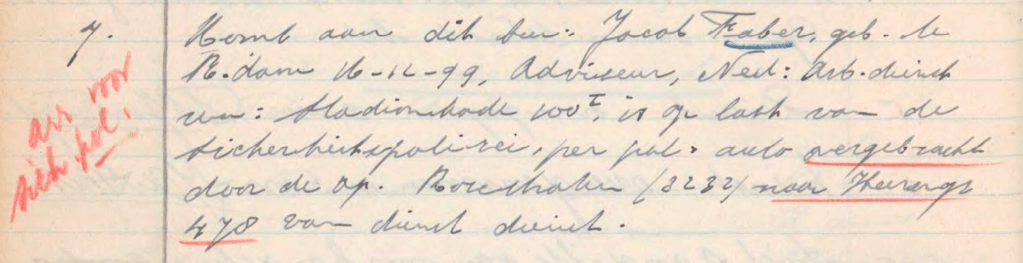 7. Komt aan dit bur: Jacob Faber, geb. te
R.dam 16-12-99, Adviseur, Ned: Arb. dienst
arr voor
won: Stadionkade 100 I, is op last van de
sich pol!
Sicherheitspolizei, per pol: auto overgebracht
door de ap. (3232) naar Heerengr
478 van dienst dienst.